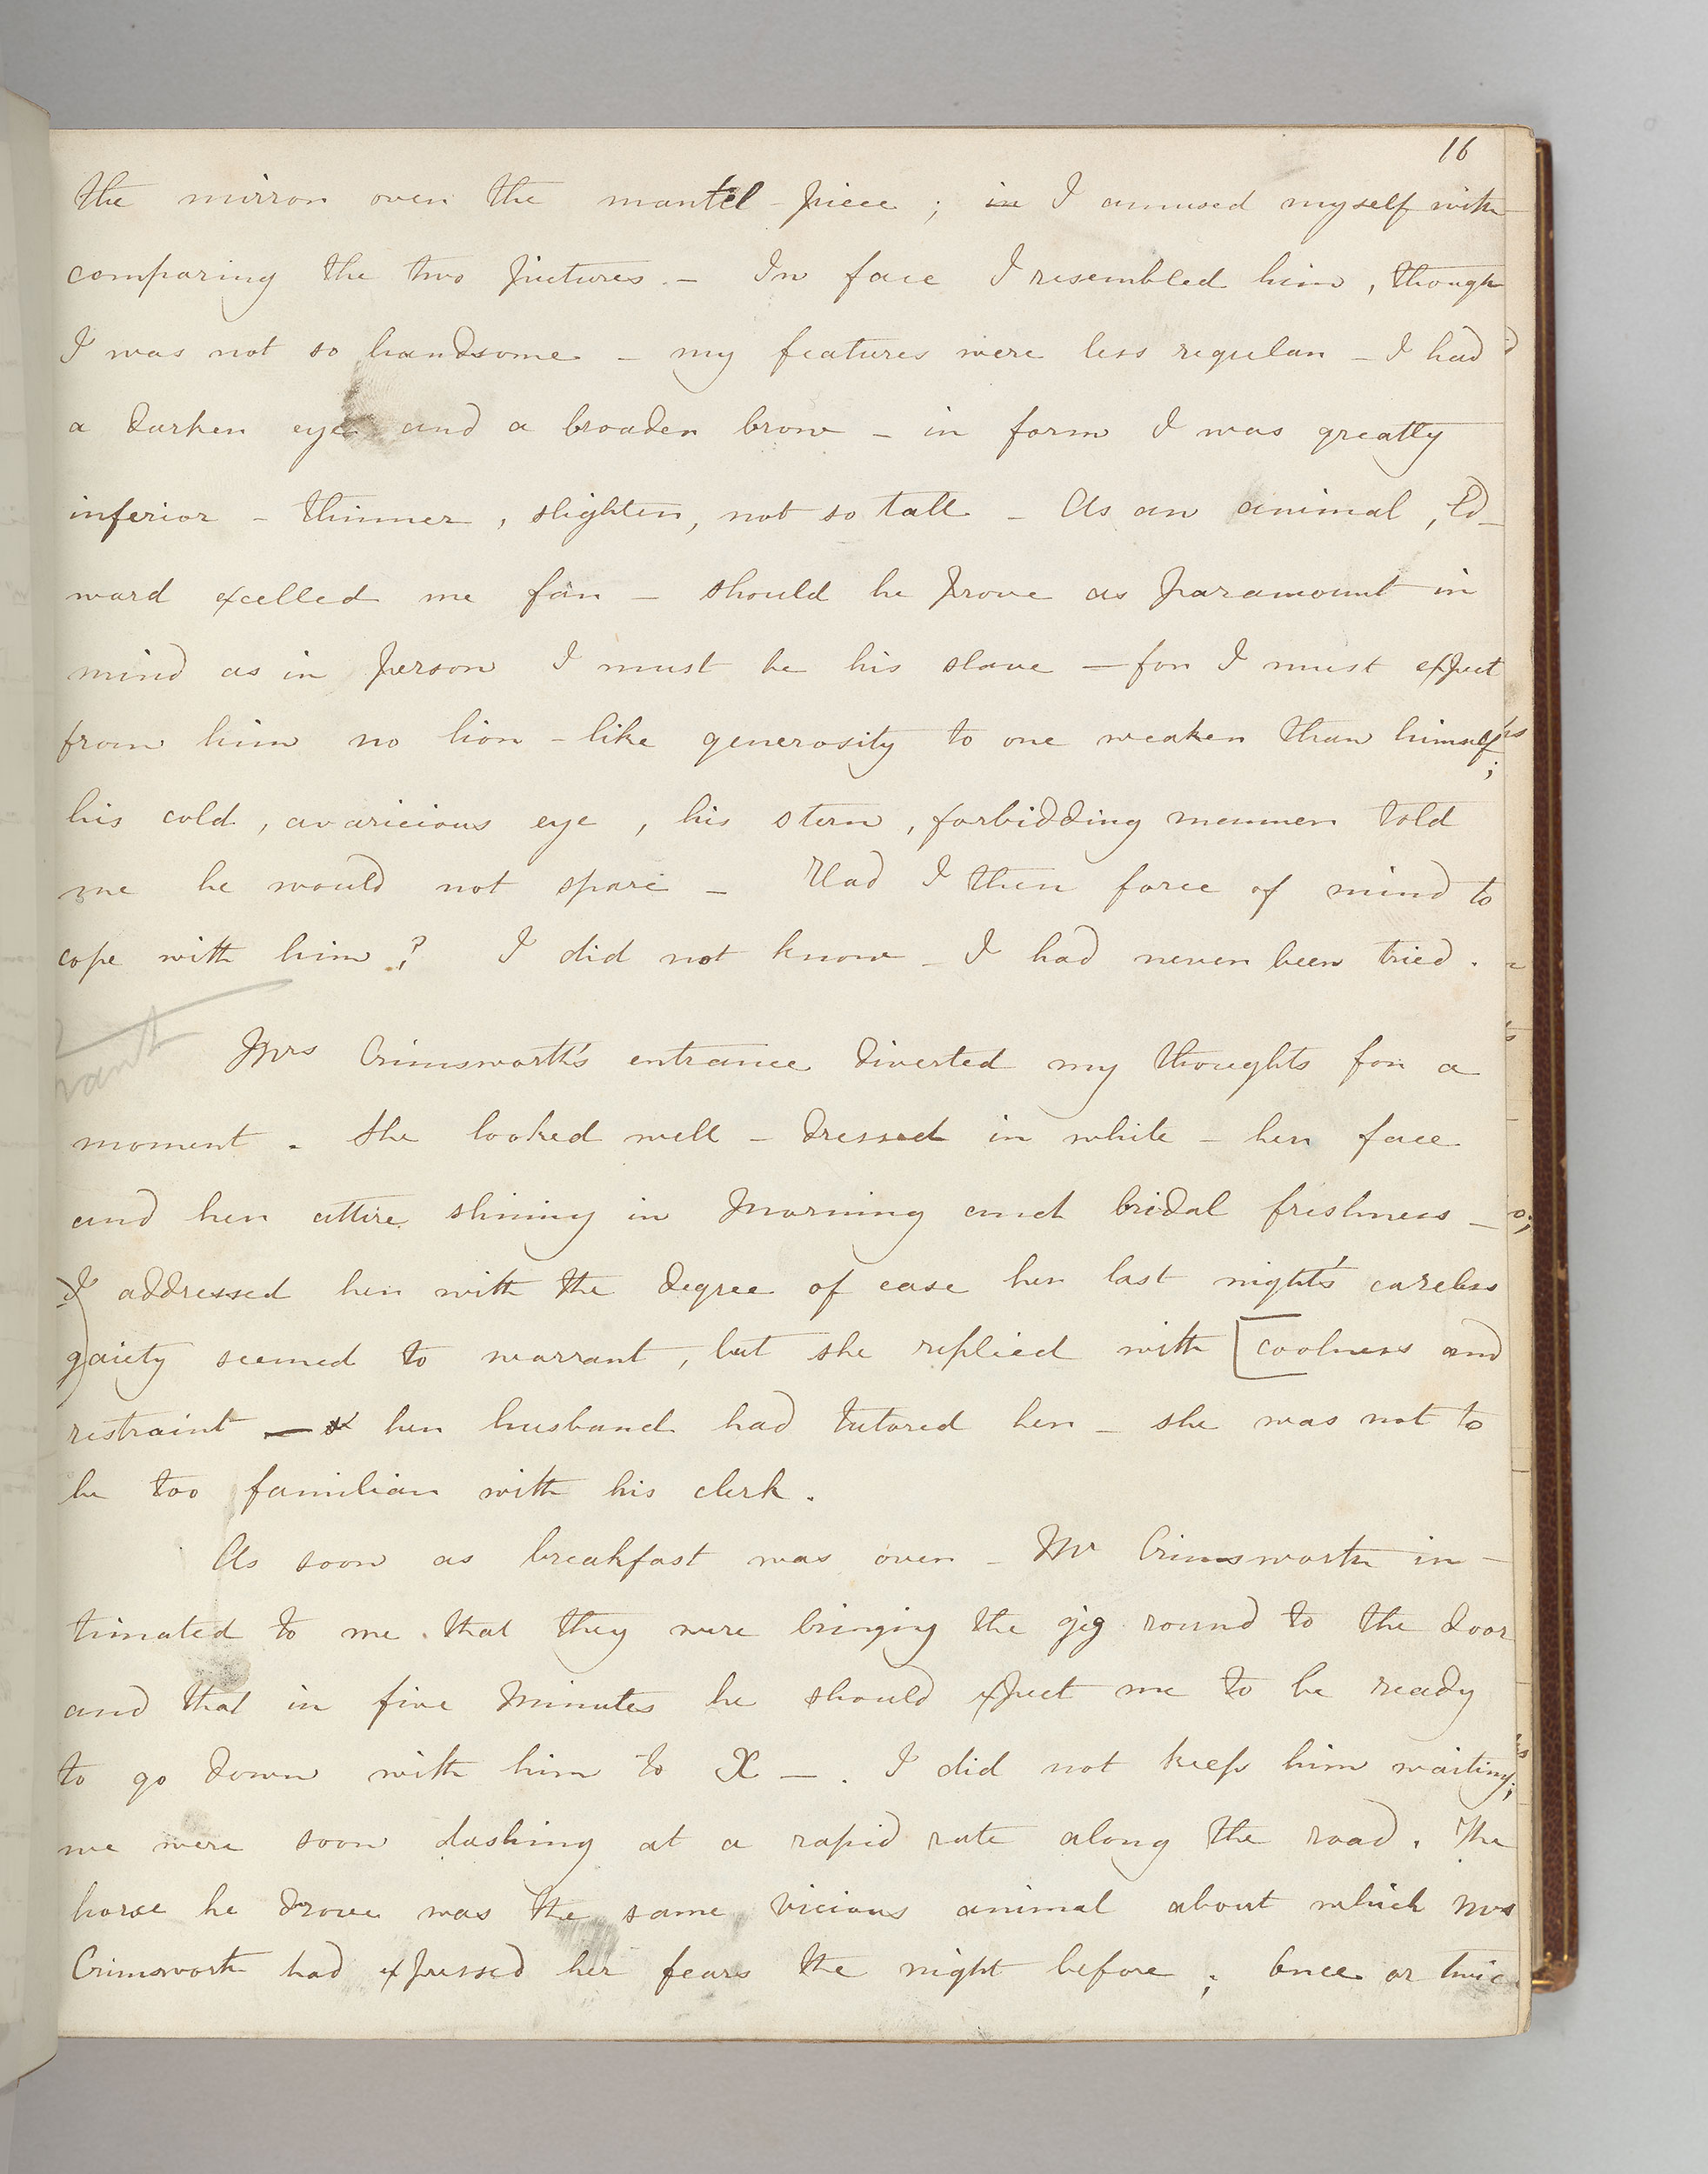 16
the mirror over the mantel-piece; in I amused myself with
comparing the two pictures. – In face I resembled him, though
I was not so handsome – my features were less regular – I had
a darker eye and a broader brow – in form I was greatly
inferior – thinner, slighter, not so tall – As an animal, Ed-
ward excelled me far – should he prove as paramount in
mind as in person I must be his slave – for I must expect
from him no lion-like generosity to one weaker than himself;
his cold, avaricious eye, his stern, forbidding manner told
me he would not spare – Had I then force of mind to
cope with him? I did not know – I had never been tried.
Mrs Crimsworth's entrance diverted my thoughts for a
moment. She looked well – dressed in white – her face
and her attire shining in morning and bridal freshness –
I addressed her with the degree of ease her last night's careless
gaiety seemed to warrant, but she replied with [coolness and
restraint – her husband had tutored her – she was not to
be too familiar with his clerk.
As soon as breakfast was over – Mr Crimsworth in-
timated to me that they were bringing the gig round to the door
and that in five minutes he should expect me to be ready
to go down with him to X–. I did not keep him waiting;
we were soon dashing at a rapid rate along the road. The
horse he drove was the same vicious animal about which Mrs
Crimsworth had expressed her fears the night before; Once or twice